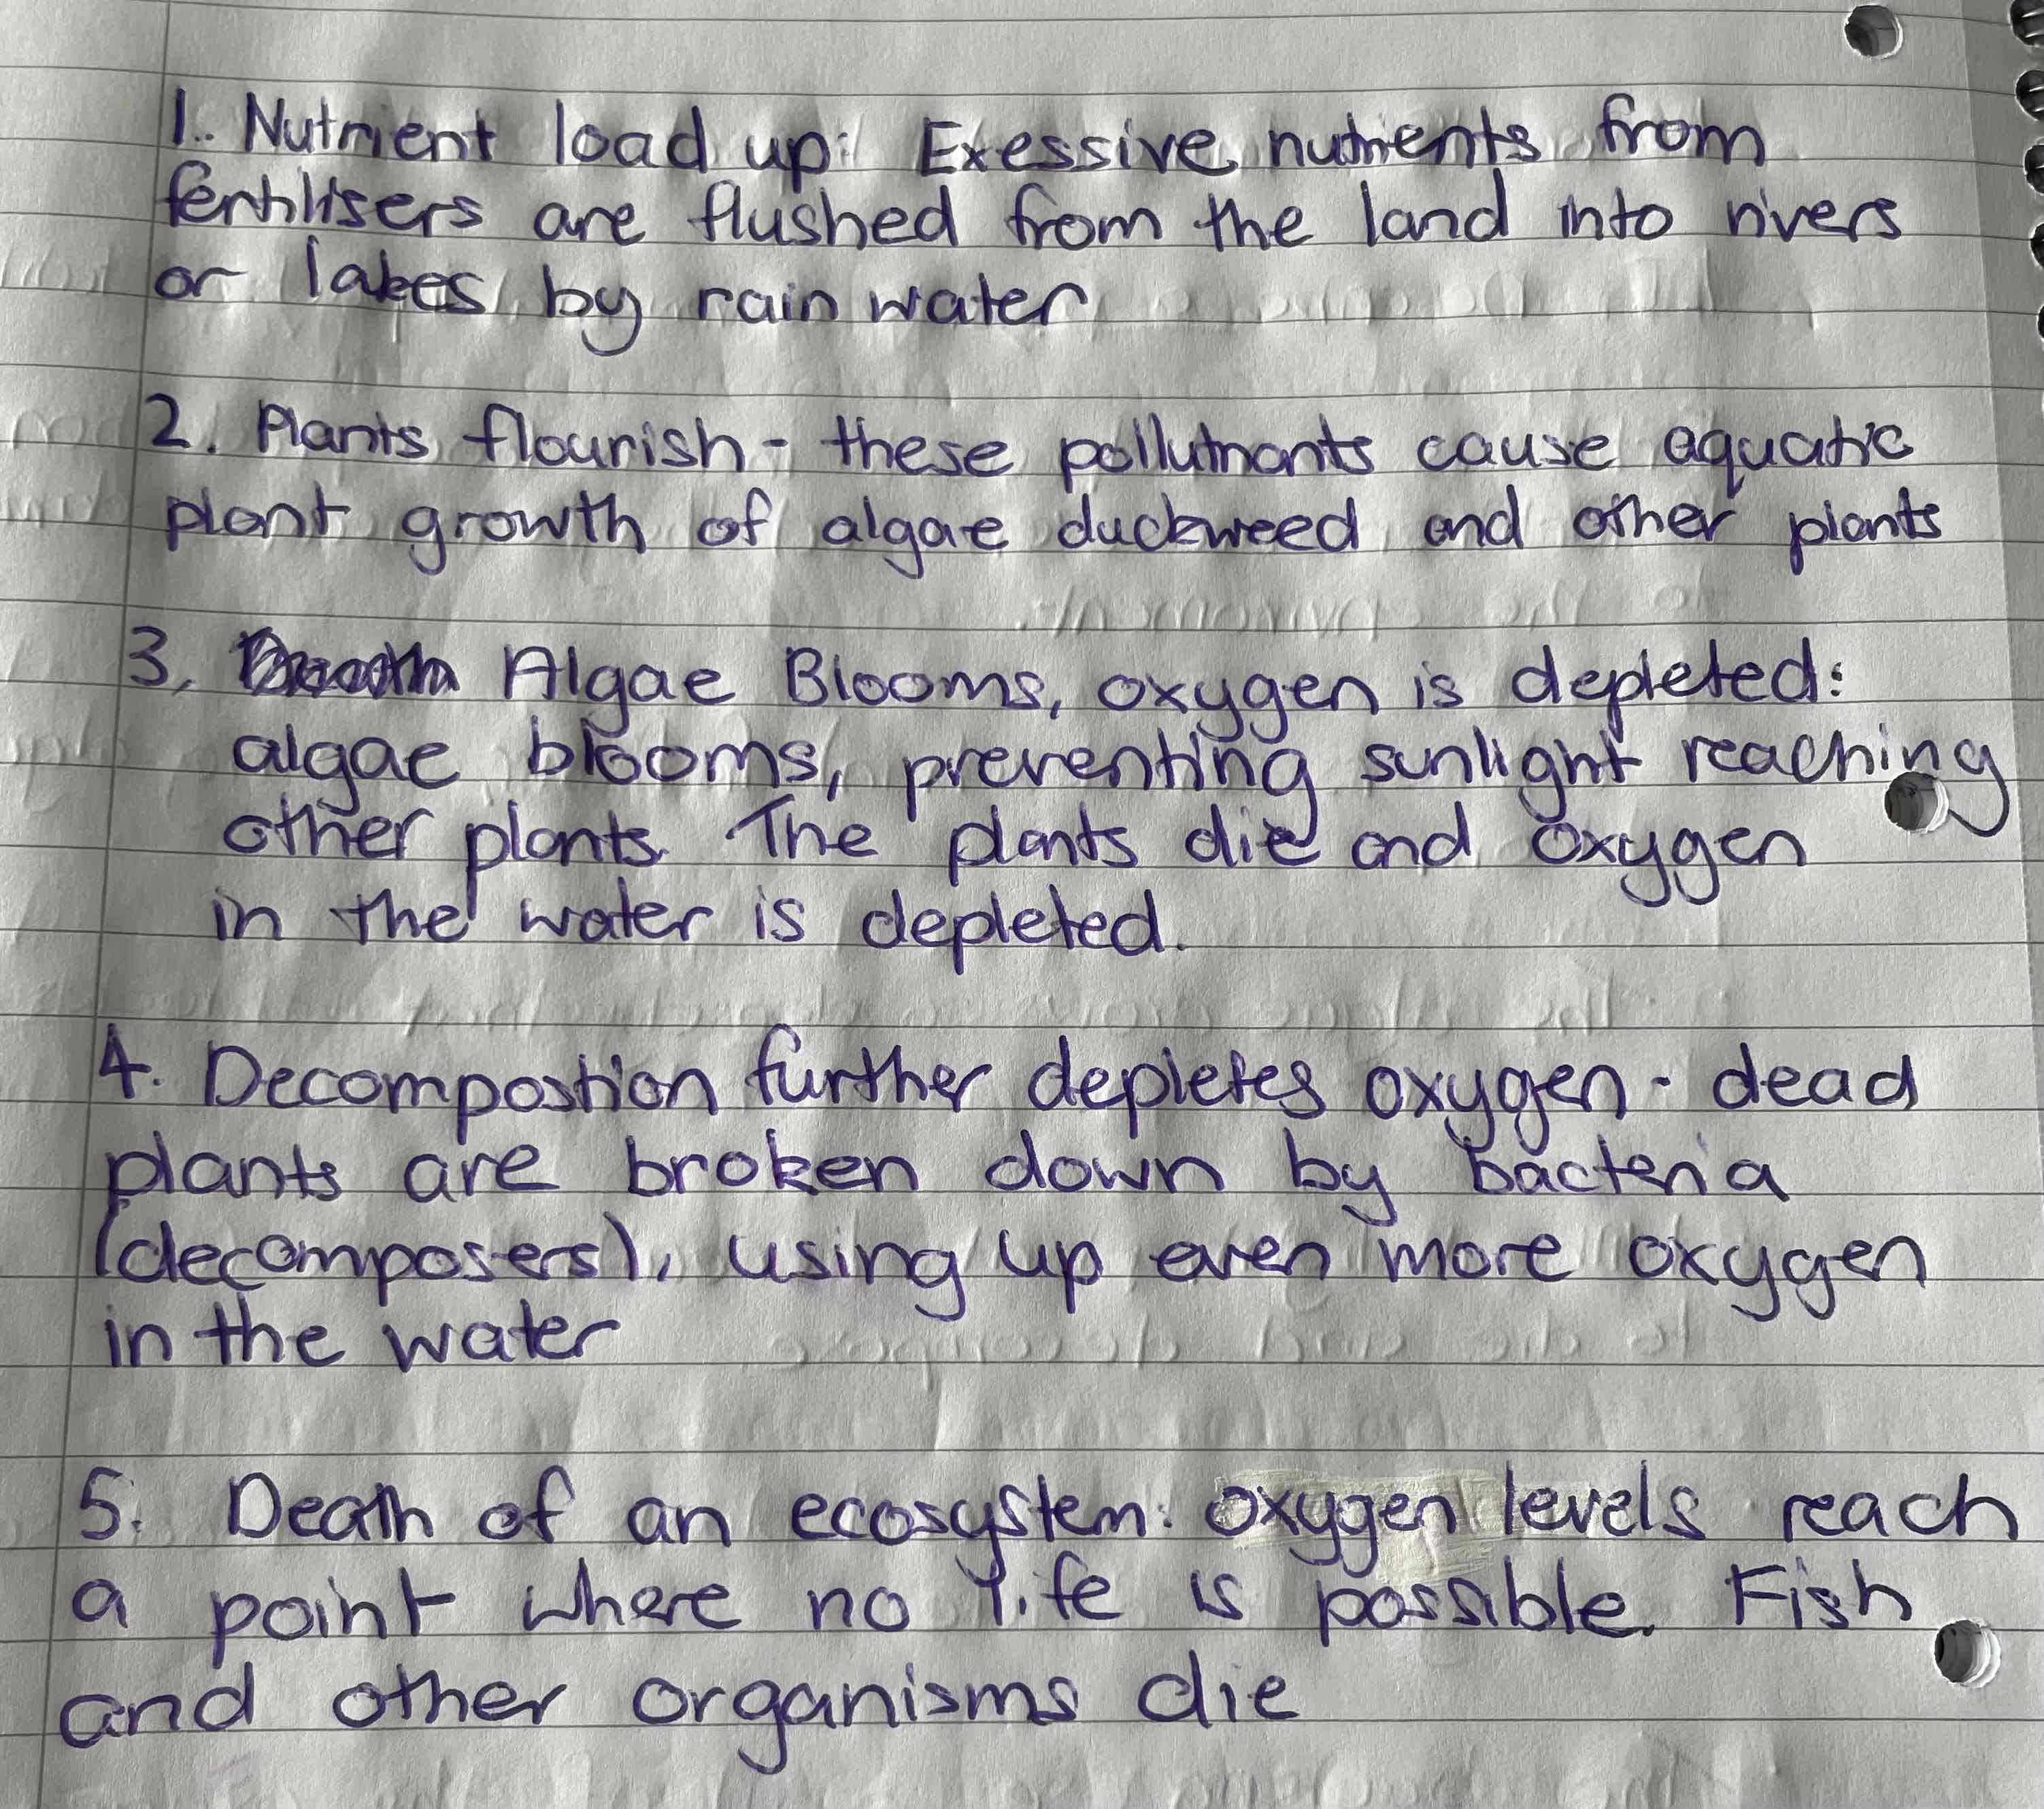 1. Nutrient load up: Exessive nutrients from
fertilisers are flushed from the land into rivers
or lakes by rain water
2. Plants flourish - these pollutnants cause aquatic
plant growth of algae duckweed and other plants
3. Algae Blooms, oxygen is depleted:
algae blooms, preventing sunlight reaching
other plants. The plants die and oxygen
in the water is depleted.
4. Decompostion further depletes oxygen - dead
plants are broken down by bacteria
(decomposers), using up even more oxygen
in the water
5. Death of an ecosystem: oxygen levels reach
a point where no life is possible. Fish
and other organisms die